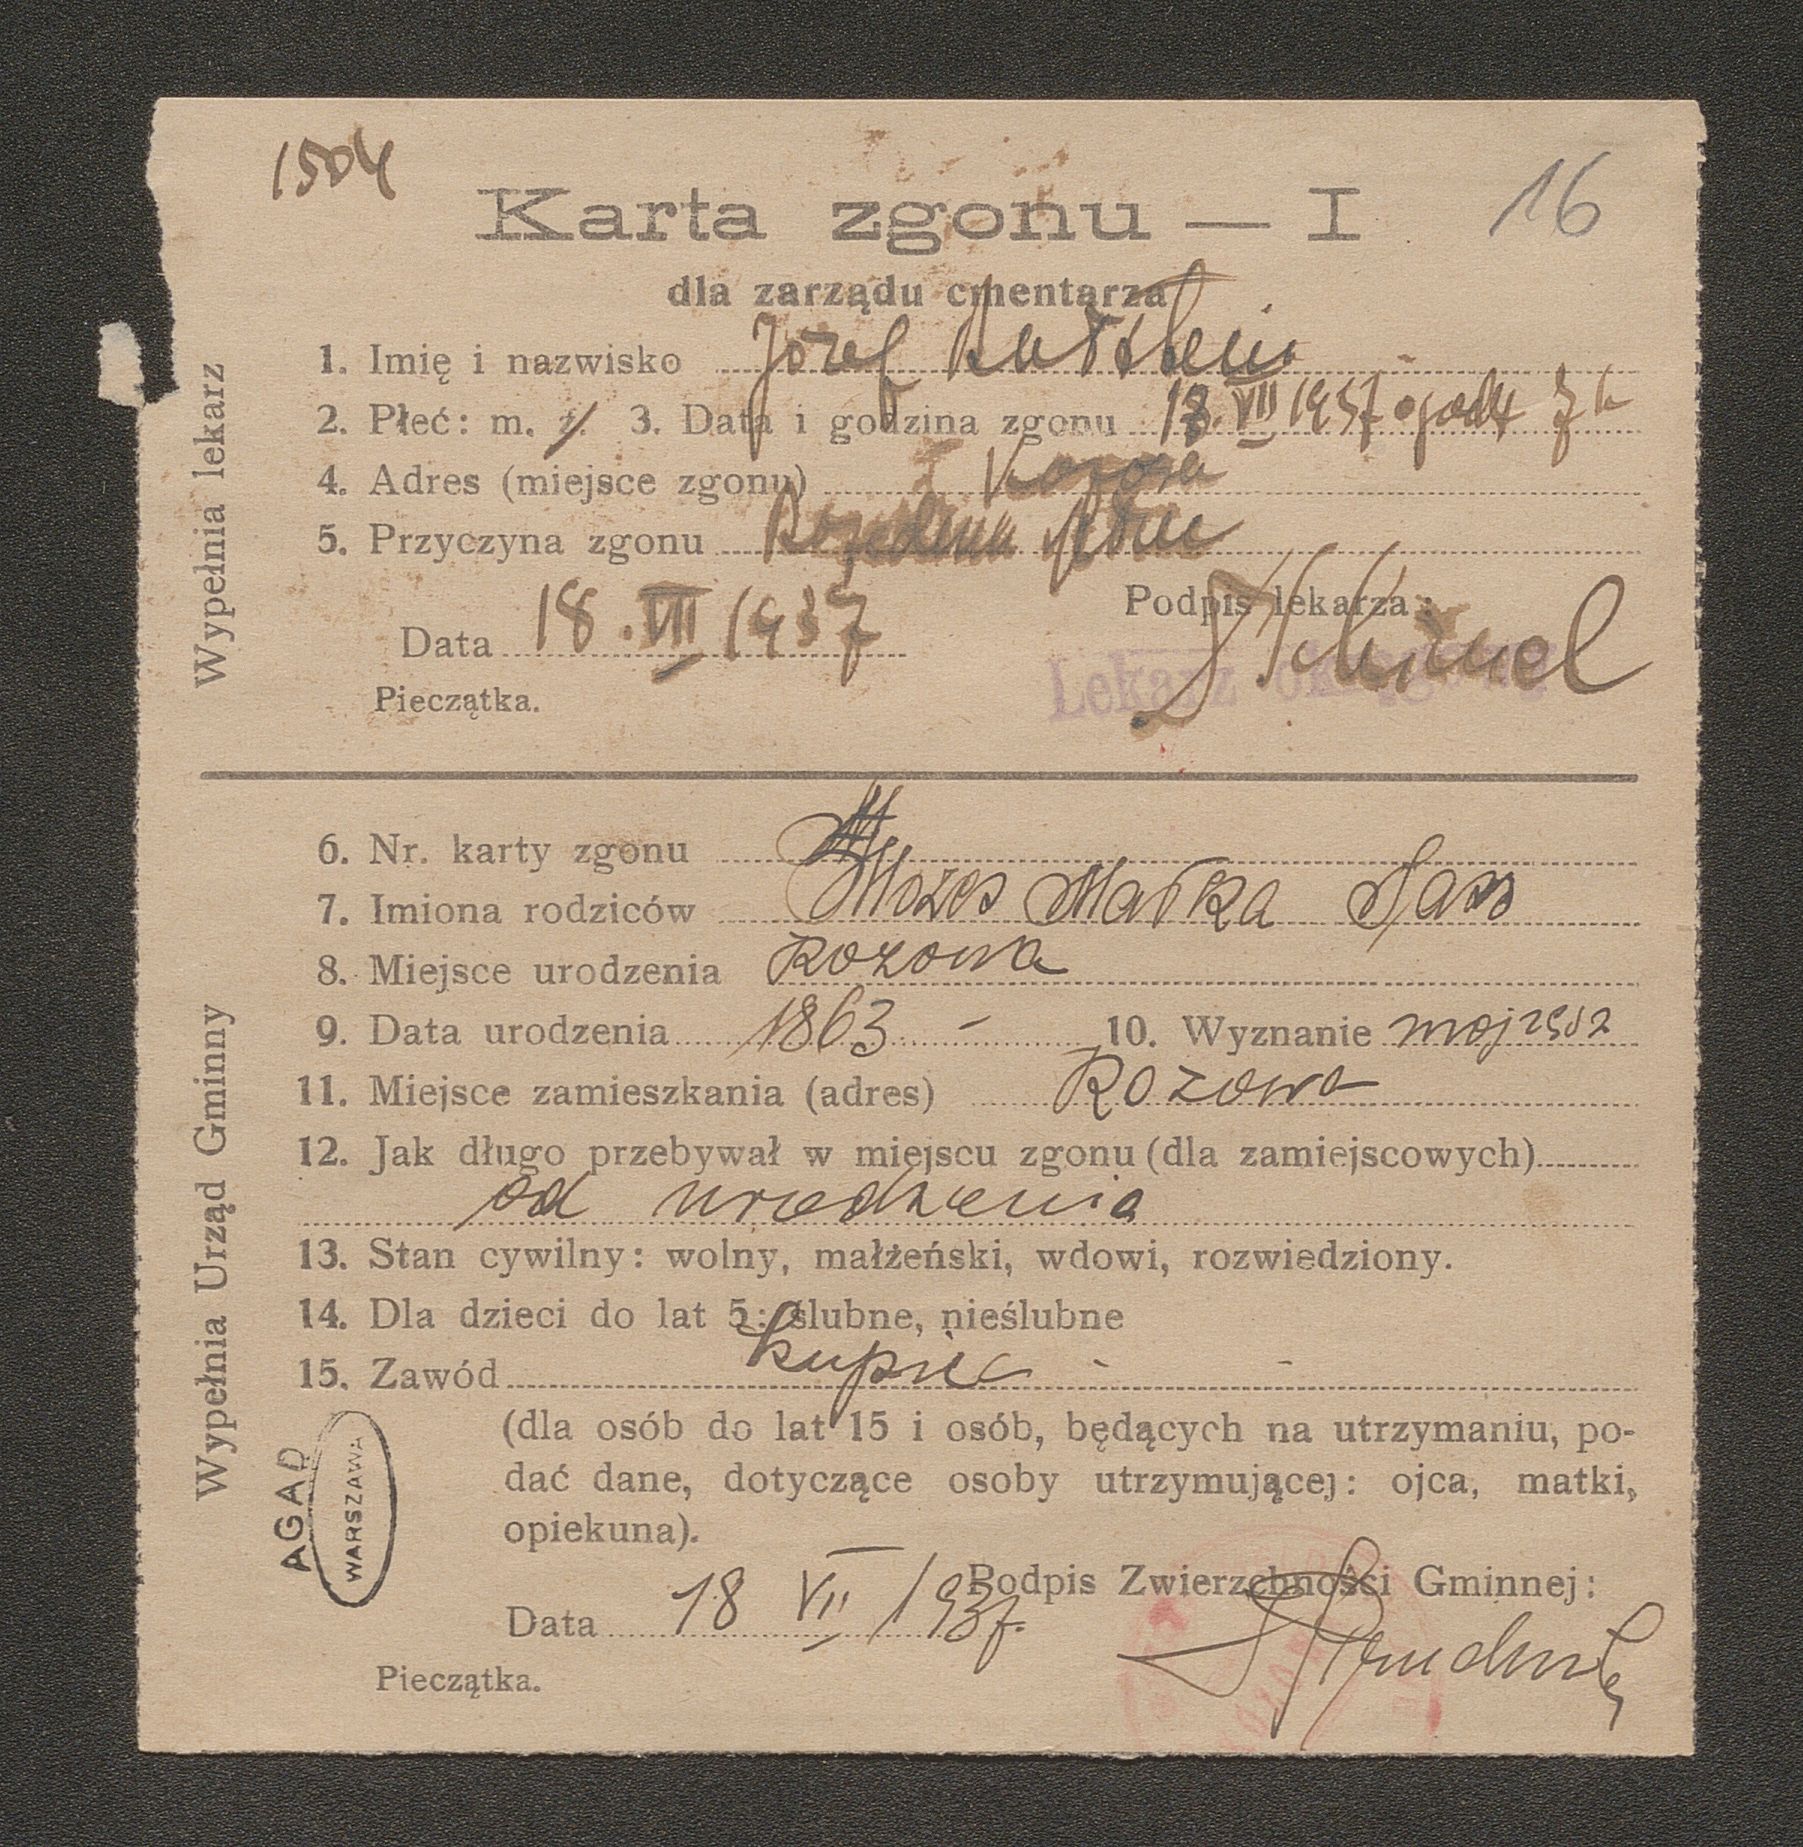 1504
16
Karta zgonu — I
dla zarządu cmentarza
Wypełnia lekarz
1. Imię i nazwisko Józef
2. Płeć: m. ż. 3. Data i godzina zgonu 18. VII 1937 o godz 7 h
4. Adres (miejsce zgonu)
5. Przyczyna zgonu
Data 18. VII 1937
Podpis lekarza:
Lekarz okręgowy
Pieczątka.
Wypełnia Urząd Gminny
6. Nr. karty zgonu
7. Imiona rodziców Mozes Marka
8. Miejsce urodzenia Rozowa
9. Data urodzenia 1863 — 10. Wyznanie mojżesz
11. Miejsce zamieszkania (adres) Rozowa
12. Jak długo przebywał w miejscu zgonu (dla zamiejscowych)
od urodzenia
13. Stan cywilny: wolny, małżeński, wdowi, rozwiedziony.
14. Dla dzieci do lat 5: ślubne, nieślubne
15. Zawód kupiec - -
(dla osób do lat 15 i osób, będących na utrzymaniu, po-
dać dane, dotyczące osoby utrzymującej: ojca, matki,
opiekuna).
AGAD
WARSZAWA
Podpis Zwierzchności Gminnej:
Data 18 VII 1937.
Pieczątka.